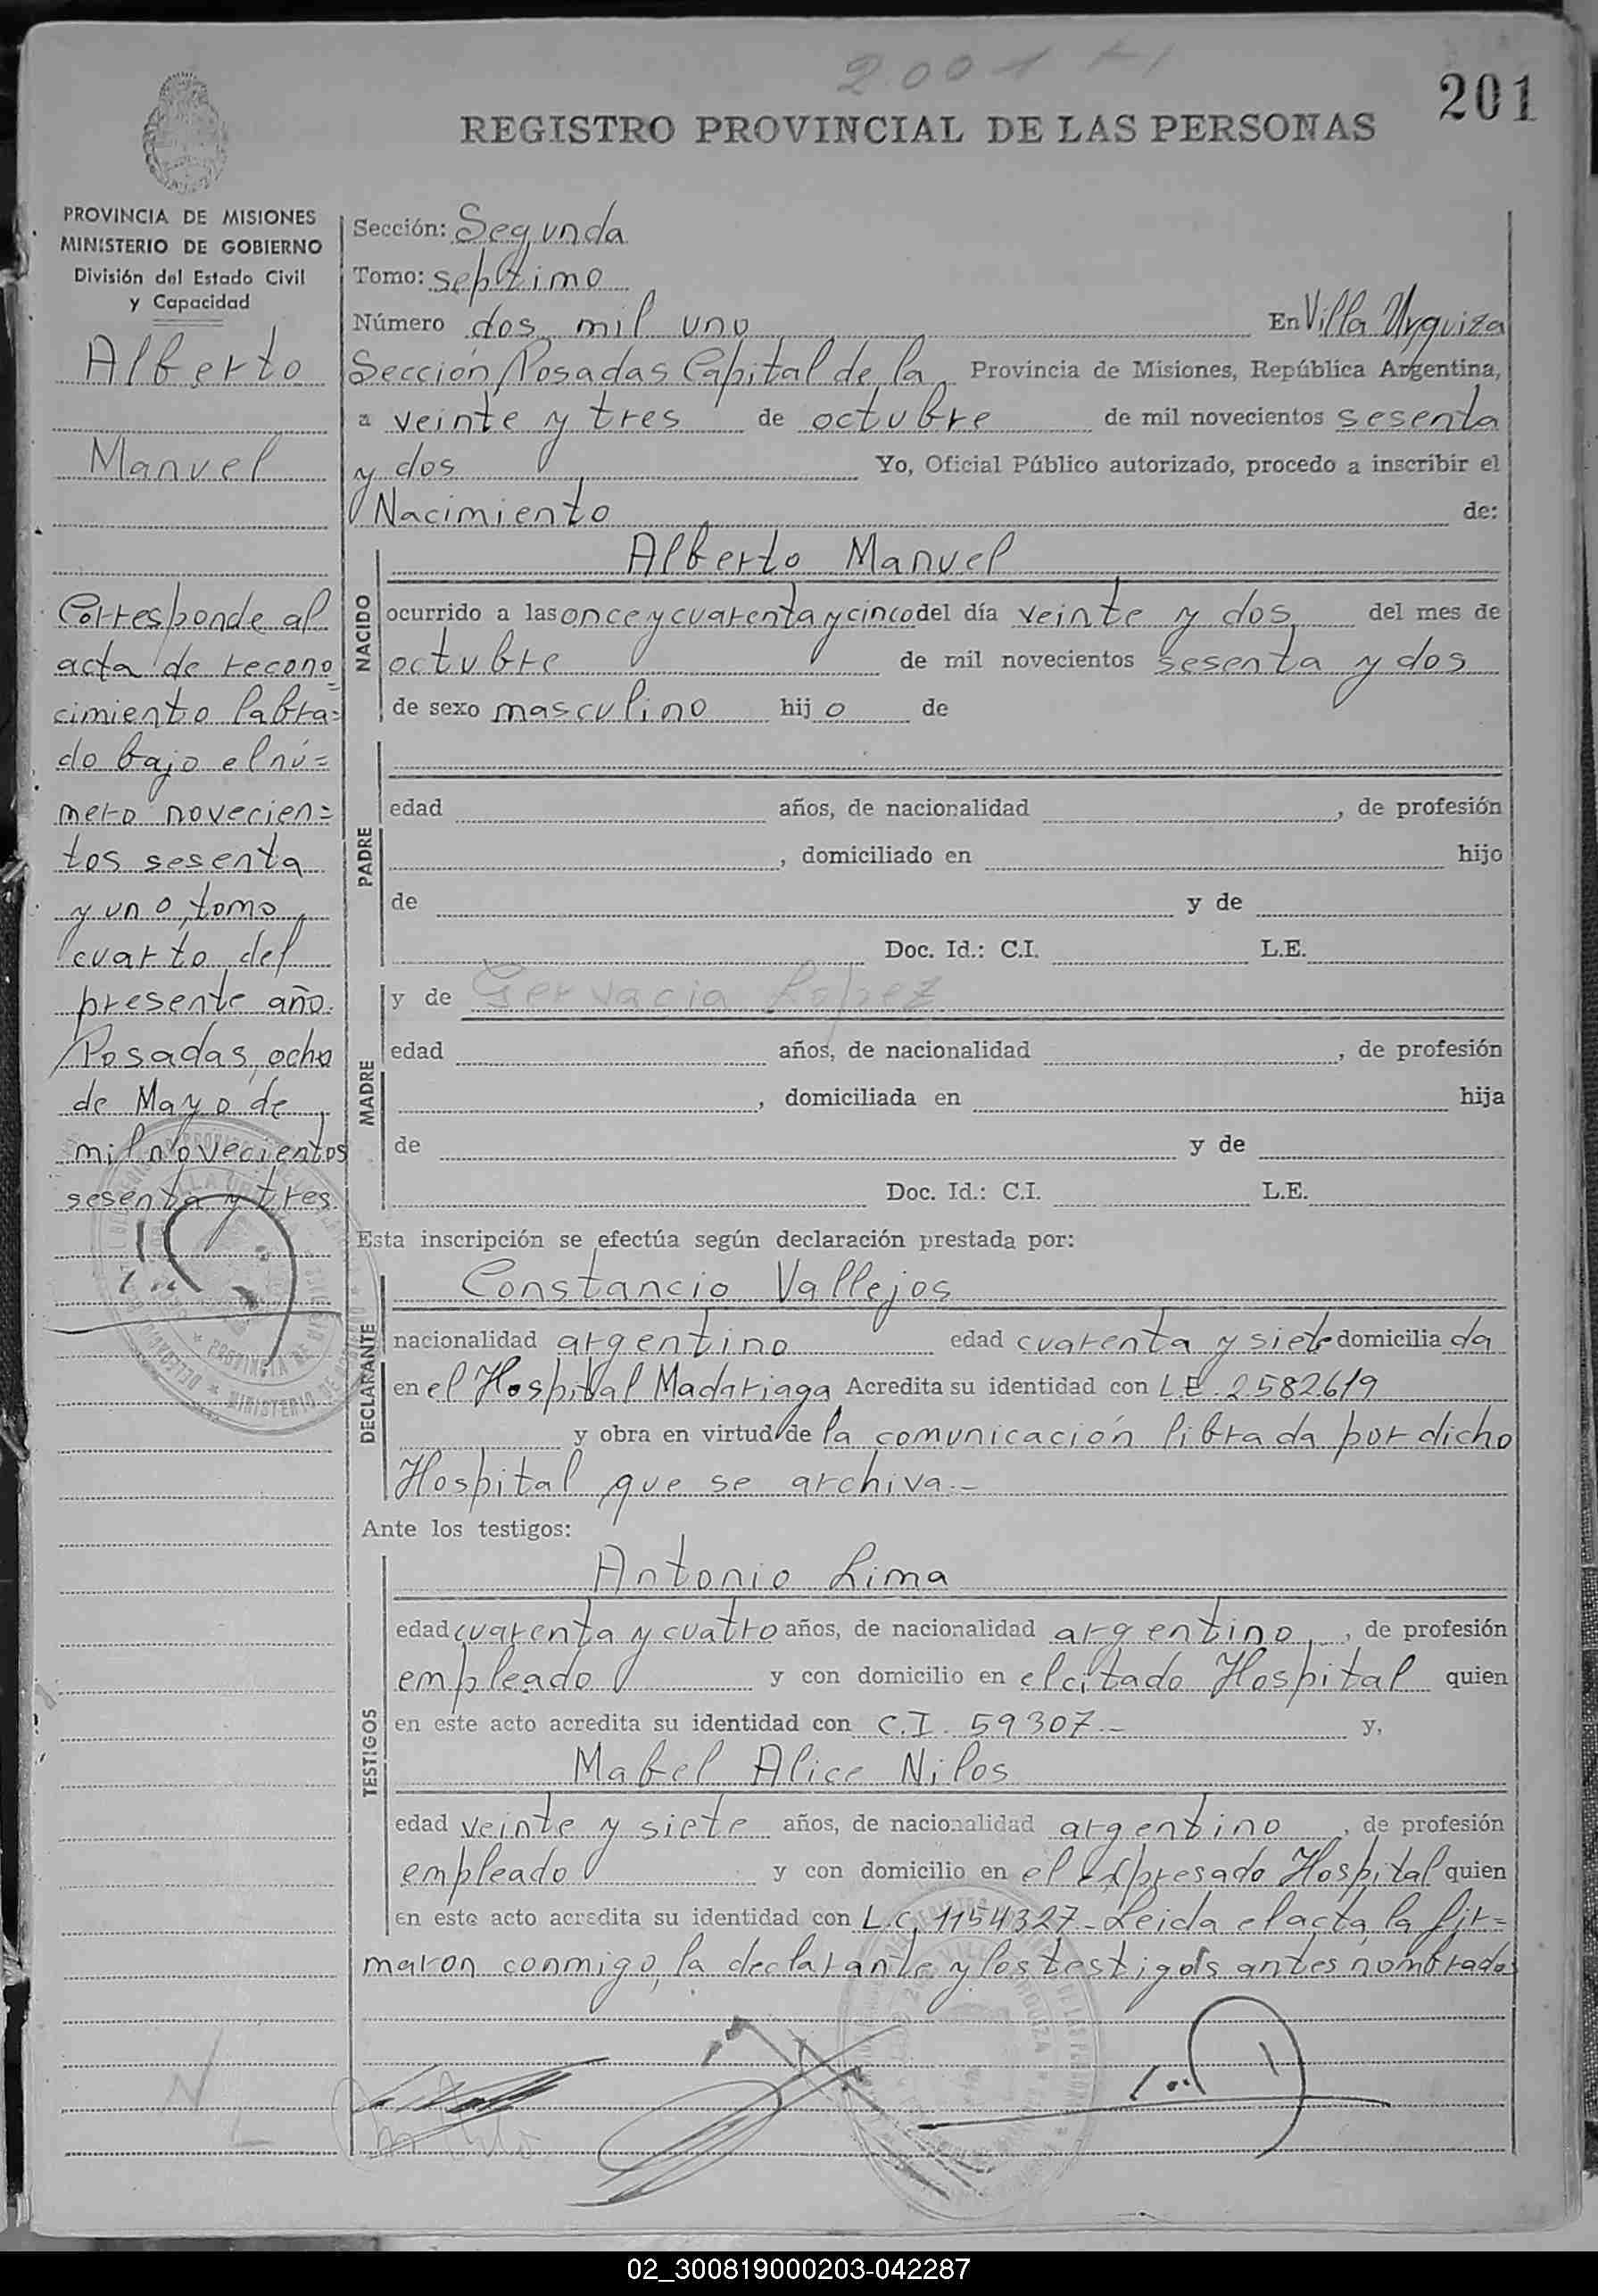 2.001
201
REGISTRO PROVINCIAL DE LAS PERSONAS
PROVINCIA DE MISIONES
MINISTERIO DE GOBIERNO
División del Estado Civil
y Capacidad
Alberto
Manuel
Corresponde al
acta de recono
cimiento labra=
do bajo el nú=
mero novecien=
tos sesenta
y uno, tomo
cuarto del
presente año.
Posadas, ocho
de Mayo de
mil novecientos
sesenta y tres.
Sección: Segunda
Tomo: septimo
Número dos mil uno En Villa Urquiza
Sección, Posadas Capital de la Provincia de Misiones, República Argentina,
a veinte y tres de octubre de mil novecientos sesenta
y dos Yo, Oficial Público autorizado, procedo a inscribir el
Nacimiento de:
NACIDO
Alberto Manuel
ocurrido a las once y cuarenta y cinco del día veinte y dos del mes de
octubre de mil novecientos sesenta y dos
de sexo masculino hijo de
PADRE
edad años, de nacionalidad , de profesión
, domiciliado en hijo
de y de
Doc. Id.: C.I. L.E.
MADRE
y de Gervacia Lopez
edad años, de nacionalidad , de profesión
, domiciliada en hija
de y de
Doc. Id.: C.I. L.E.
Esta inscripción se efectúa según declaración prestada por:
DECLARANTE
Constancio Vallejos
nacionalidad argentino edad cuarenta y siete domiciliada
en el Hospital Madariaga Acredita su identidad con L.E. 2.582.619
y obra en virtud de la comunicación librada por dicho
Hospital que se archiva.-
Ante los testigos:
TESTIGOS
Antonio Lima
edad cuarenta y cuatro años, de nacionalidad argentino, de profesión
empleado y con domicilio en el citado Hospital quien
en este acto acredita su identidad con C.I. 59307.- y,
Mabel Alice Nilos
edad veinte y siete años, de nacionalidad argentino, de profesión
empleado y con domicilio en el expresado Hospital quien
en este acto acredita su identidad con L.C. 1154327- Leida el acta, la fir=
maron conmigo, la declarante y los testigos antes nombrados
02_300819000203-042287